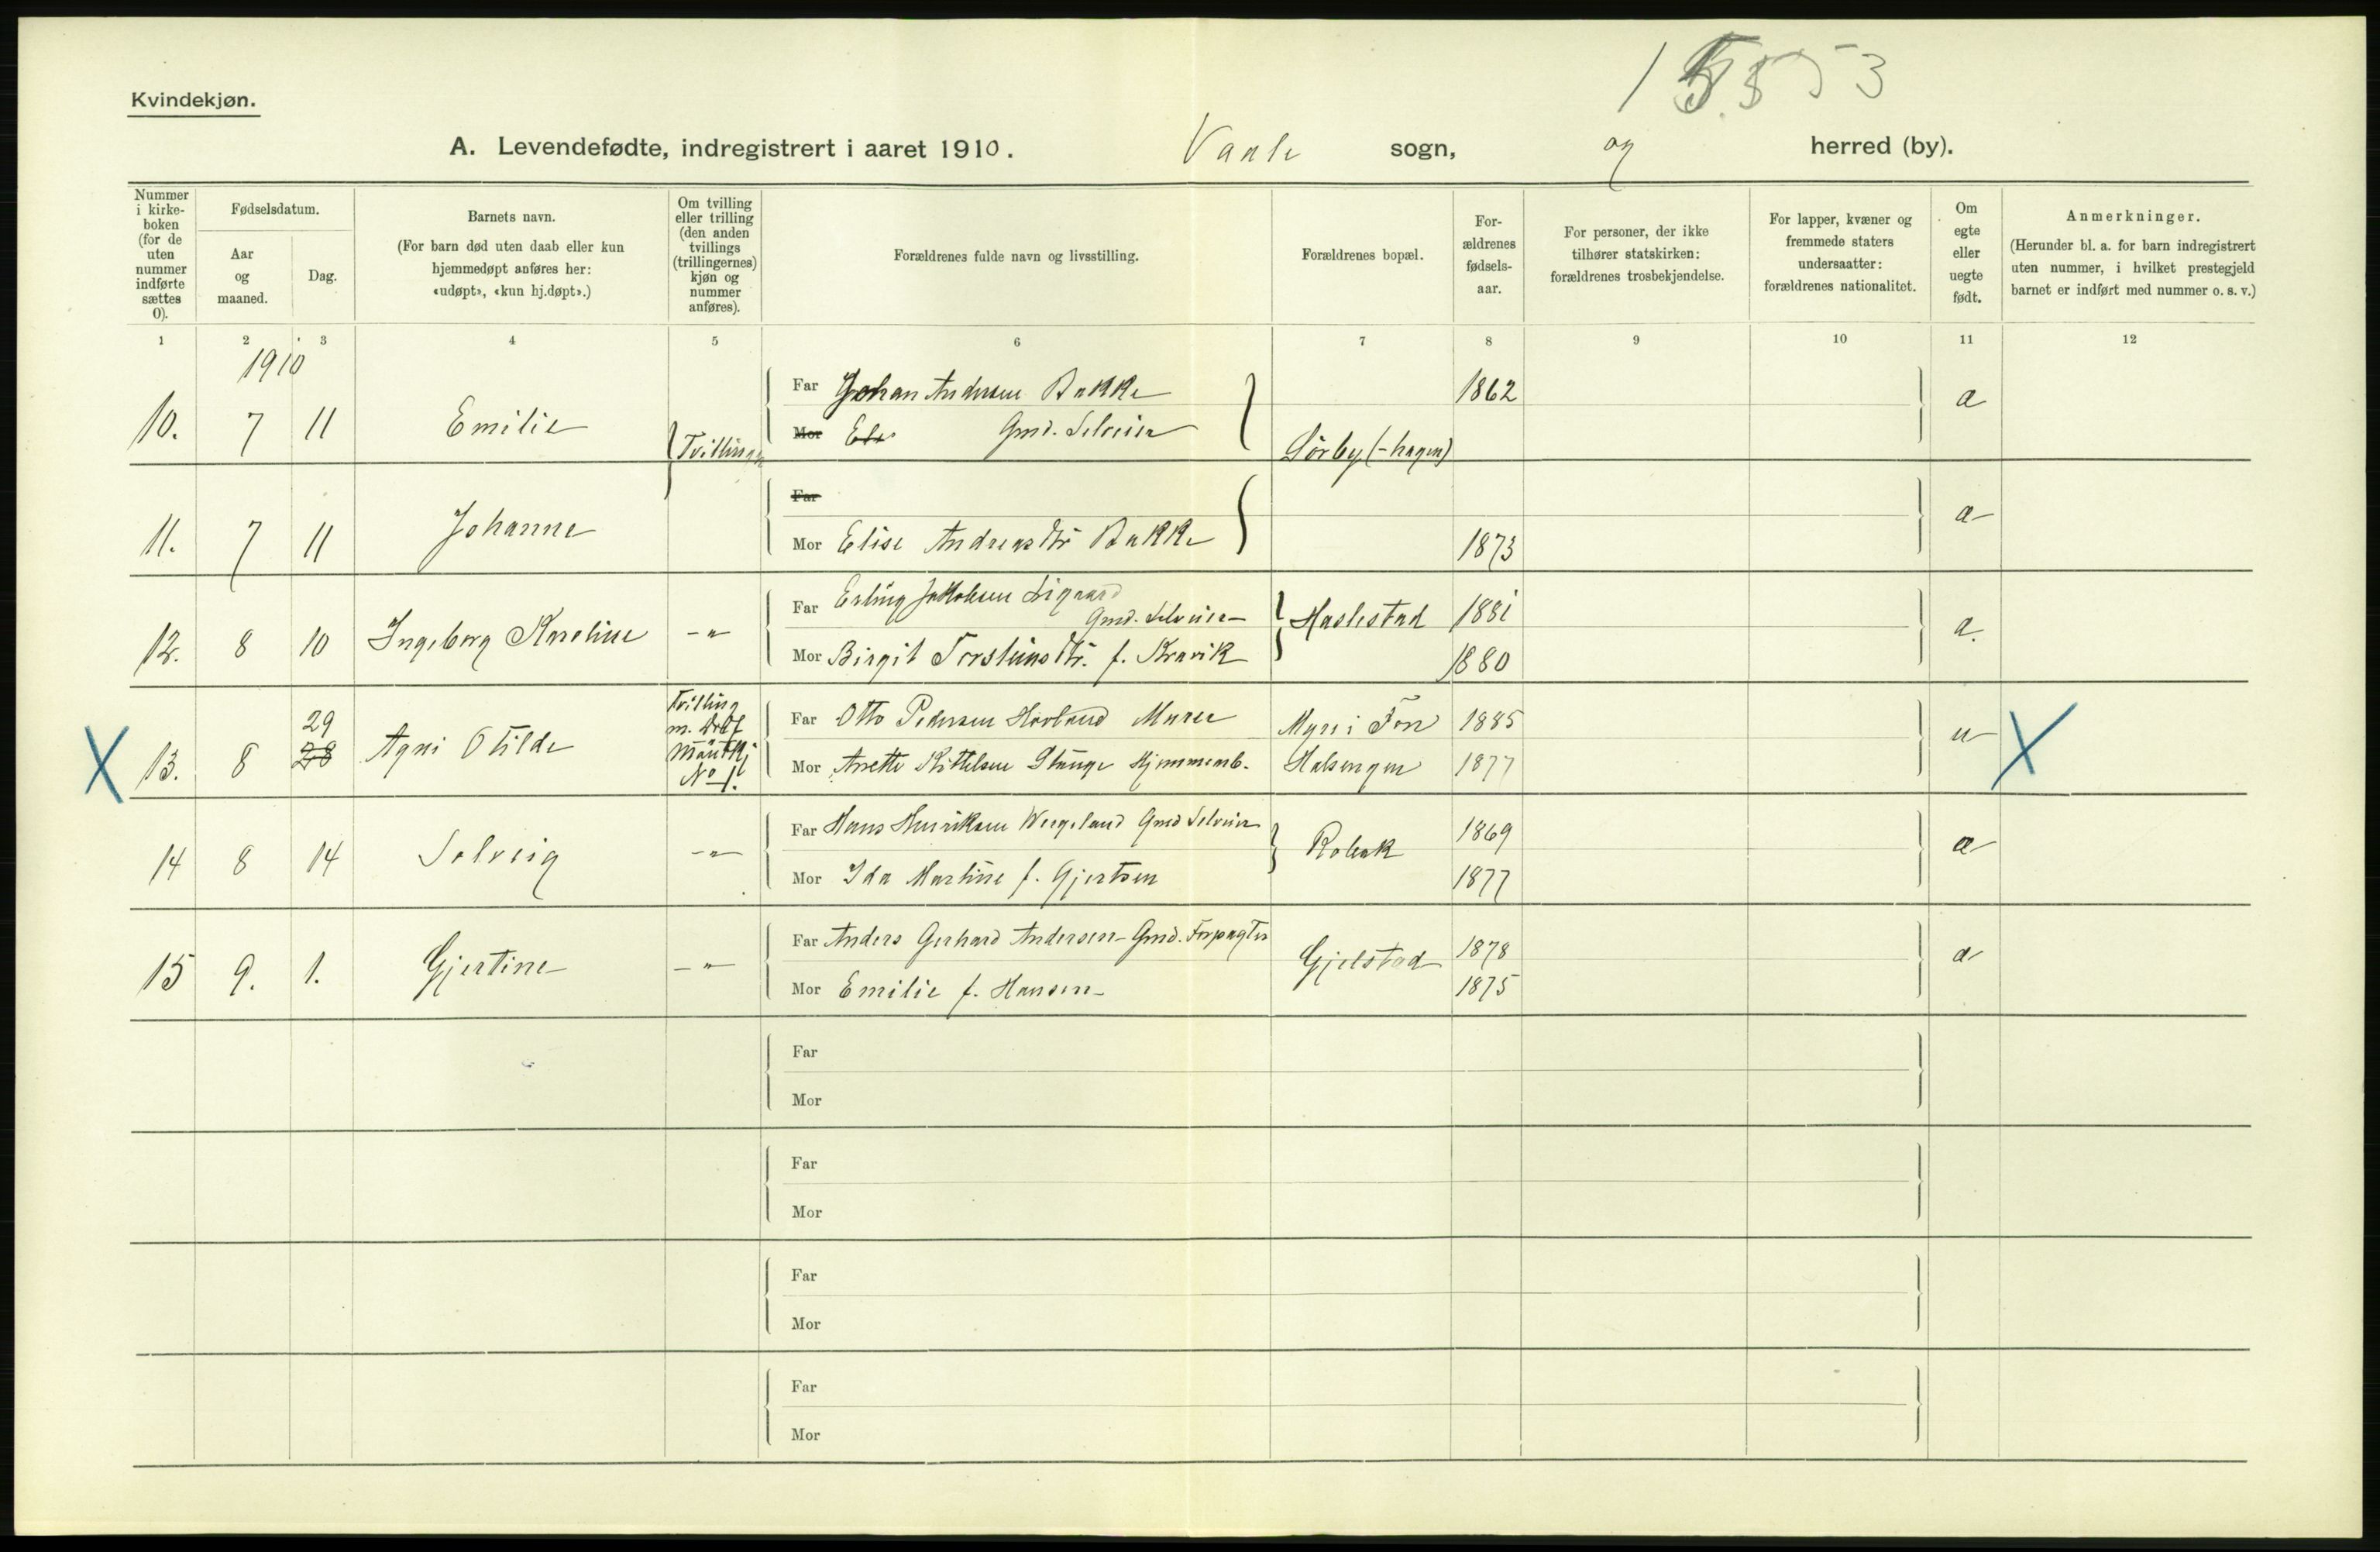 Kvindekjøn.
A. Levendefødte, indregistrert i aaret 1910. Vaale sogn, og herred (by).
Nummer i kirkeboken (for de uten nummer indførte sættes 0).
Fødselsdatum.
Aar og maaned.
Dag.
Barnets navn.
(For barn død uten daab eller kun hjemmedøpt anføres her: «udøpt», «kun hj.døpt».)
Om tvilling eller trilling (den anden tvillings (trillingernes) kjøn og nummer anføres).
Forældrenes fulde navn og livsstilling.
Forældrenes bopæl.
Forældrenes fødselsaar.
For personer, der ikke tilhører statskirken: forældrenes trosbekjendelse.
For lapper, kvæner og fremmede staters undersaatter: forældrenes nationalitet.
Om egte eller uegte født.
Anmerkninger.
(Herunder bl. a. for barn indregistrert uten nummer, i hvilket prestegjeld barnet er indført med nummer o. s. v.)
1 2 3 4 5 6 7 8 9 10 11 12
1910
Far Johan Andersen Bakke 1862
10. 7 11 Emilie Tvillinger Mor Elis Gmd. Selveier Sørby (-hagen) a
Far
11. 7 11 Johanne Mor Elise Andreasdtr Bakke 1873 a
Far Erling Jakobsen Ligaard Gmd. Selveier
12. 8 10 Ingeborg Karoline -"- Haslestad 1881 a.
Mor Birgit Torsteinsdtr. f. Kravik 1880
X 13. 8 28 29 Agni Otilde Tvilling m. No 1. Far Otto Pedersen Hovland Murer Myre i Fon 1885 u X
Mor Anette Kittelsen Stange Hjemmemb. Halsengen 1877
Far Hans Henriksen Wergeland Gmd Selveier 1869
14 8 14 Solveig -"- Roberk a
Mor Ida Martine f. Gjertsen 1877
Far Anders Gerhard Andersen Gmd. Forpagter 1878
15 9. 1. Gjertine -"- Gjelstad a
Mor Emilie f. Hansen 1875
Far
Mor
Far
Mor
Far
Mor
Far
Mor